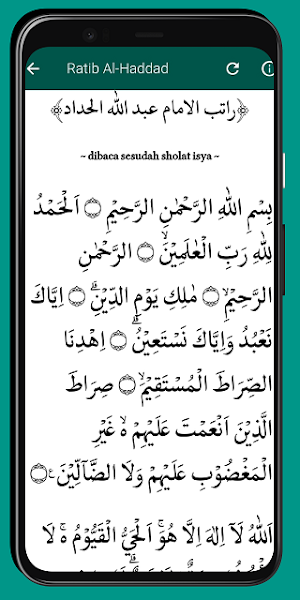 Ratib Al-Haddad
﴿راتب الامام عبد الله الحداد﴾
~ dibaca sesudah sholat isya ~
بِسْمِ اللهِ الرَّحْمٰنِ الرَّحِيْمِ ۝ اَلْحَمْدُ
لِلّٰهِ رَبِّ الْعٰلَمِيْنَۙ ۝ الرَّحْمٰنِ
الرَّحِيْمِۙ ۝ مٰلِكِ يَوْمِ الدِّيْنِۗ ۝ اِيَّاكَ
نَعْبُدُ وَاِيَّاكَ نَسْتَعِيْنُۗ ۝ اِهْدِنَا
الصِّرَاطَ الْمُسْتَقِيْمَۙ ۝ صِرَاطَ
الَّذِيْنَ اَنْعَمْتَ عَلَيْهِمْ ەۙ غَيْرِ
الْمَغْضُوْبِ عَلَيْهِمْ وَلَا الضَّاۤلِّيْنَࣖ ۝
اَللهُ لَآ اِلٰهَ اِلَّا هُوَۚ اَلْحَيُّ الْقَيُّوْمُ ەۚ لَا